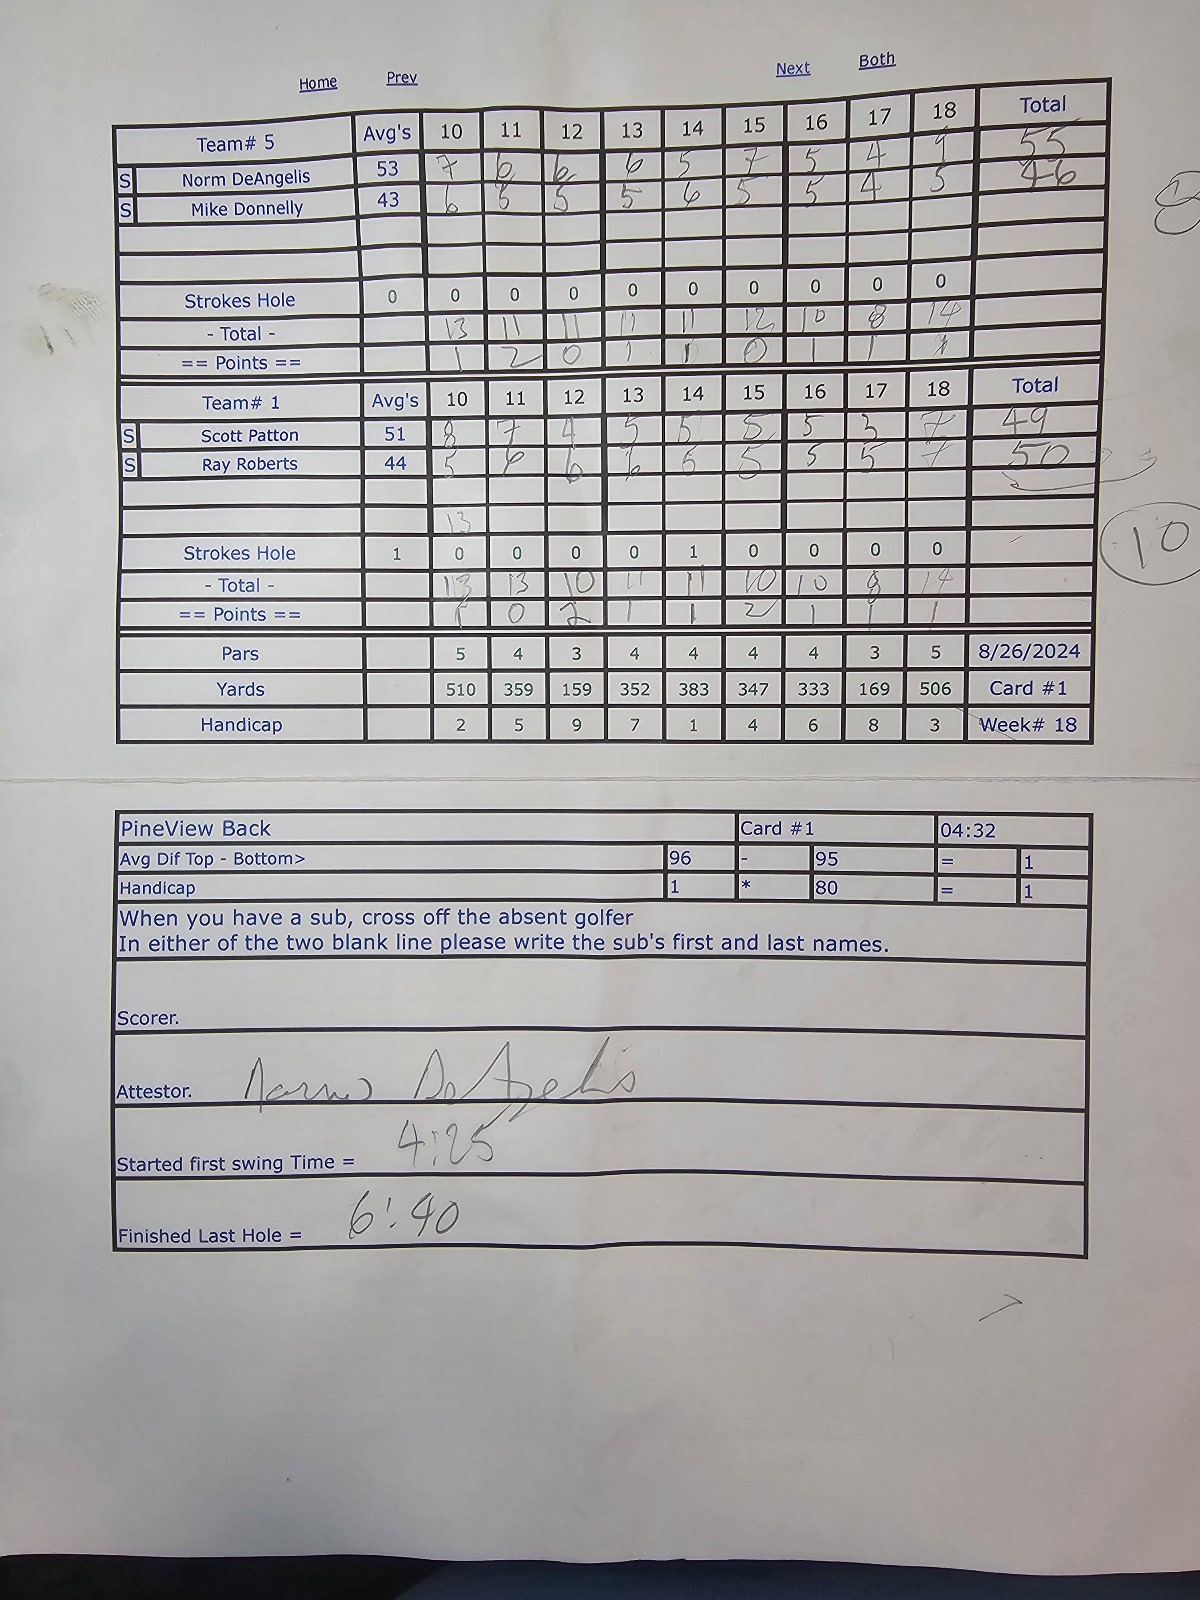 Home Prev Next Both
Team# 5 Avg's 10 11 12 13 14 15 16 17 18 Total
S Norm DeAngelis 53 7 6 6 6 5 7 5 4 9 55
S Mike Donnelly 43 6 5 5 5 6 5 5 4 5 46
Strokes Hole 0 0 0 0 0 0 0 0 0 0
- Total - 13 11 11 11 11 12 10 8 14
== Points == 1 2 0 1 1 0 1 1 1
Team# 1 Avg's 10 11 12 13 14 15 16 17 18 Total
S Scott Patton 51 8 7 4 5 5 5 5 3 7 49
S Ray Roberts 44 5 6 6 6 6 5 5 5 7 50
13
Strokes Hole 1 0 0 0 0 1 0 0 0 0
10
- Total - 13 13 10 11 11 10 10 8 14
== Points == 1 0 2 1 1 2 1 1 1
Pars 5 4 3 4 4 4 4 3 5 8/26/2024
Yards 510 359 159 352 383 347 333 169 506 Card #1
Handicap 2 5 9 7 1 4 6 8 3 Week# 18
PineView Back Card #1 04:32
Avg Dif Top - Bottom> 96 - 95 = 1
Handicap 1 * 80 = 1
When you have a sub, cross off the absent golfer
In either of the two blank line please write the sub's first and last names.
Scorer.
Attestor. Norm DeAngelis
Started first swing Time = 4:25
Finished Last Hole = 6:40